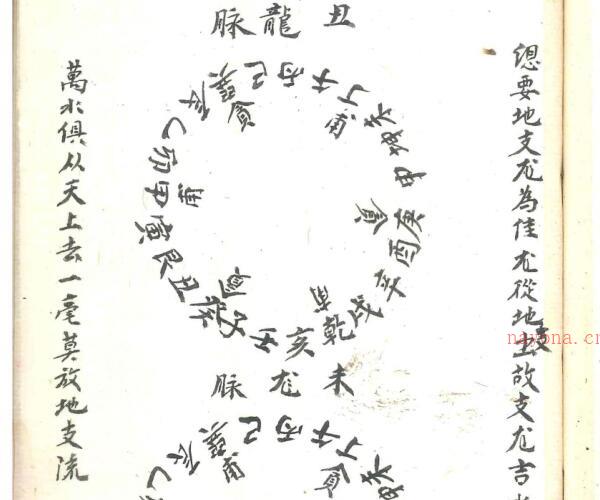 緫要地支龙為佳龙從地支故支龙吉
丑龍脉
午丁未坤申庚酉辛戌乾亥壬子癸丑艮寅甲卯乙辰巽巳丙
甫
貪
貪
甫
貪
未龙脉
乙辰巽巳丙午丁未
甫
貪
萬水俱从天上去一毫莫放地支流
nayona.cn